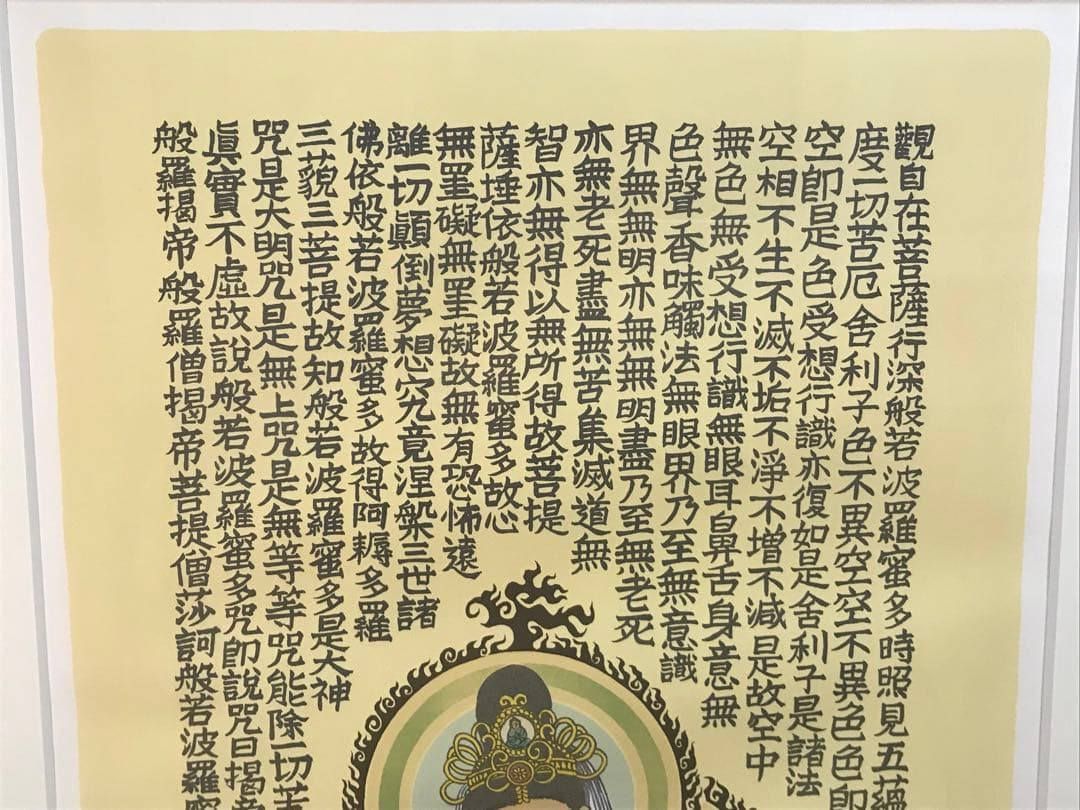 觀自在菩薩行深般若波羅蜜多時照見五蘊
度一切苦厄舍利子色不異空空不異色色卽
空卽是色受想行識亦復如是舍利子是諸法
空相不生不滅不垢不淨不增不減是故空中
無色無受想行識無眼耳鼻舌身意無
色聲香味觸法無眼界乃至無意識
界無無明亦無無明盡乃至無老死
亦無老死盡無苦集滅道無
智亦無得以無所得故菩提
薩埵依般若波羅蜜多故心
無罣礙無罣礙故無有恐怖遠
離一切顚倒夢想究竟涅槃三世諸
佛依般若波羅蜜多故得阿耨多羅
三藐三菩提故知般若波羅蜜多是大神
咒是大明咒是無上咒是無等等咒能除一切苦
眞實不虛故說般若波羅蜜多咒卽說咒曰揭帝
般羅揭帝般羅僧揭帝菩提僧莎訶般若波羅蜜